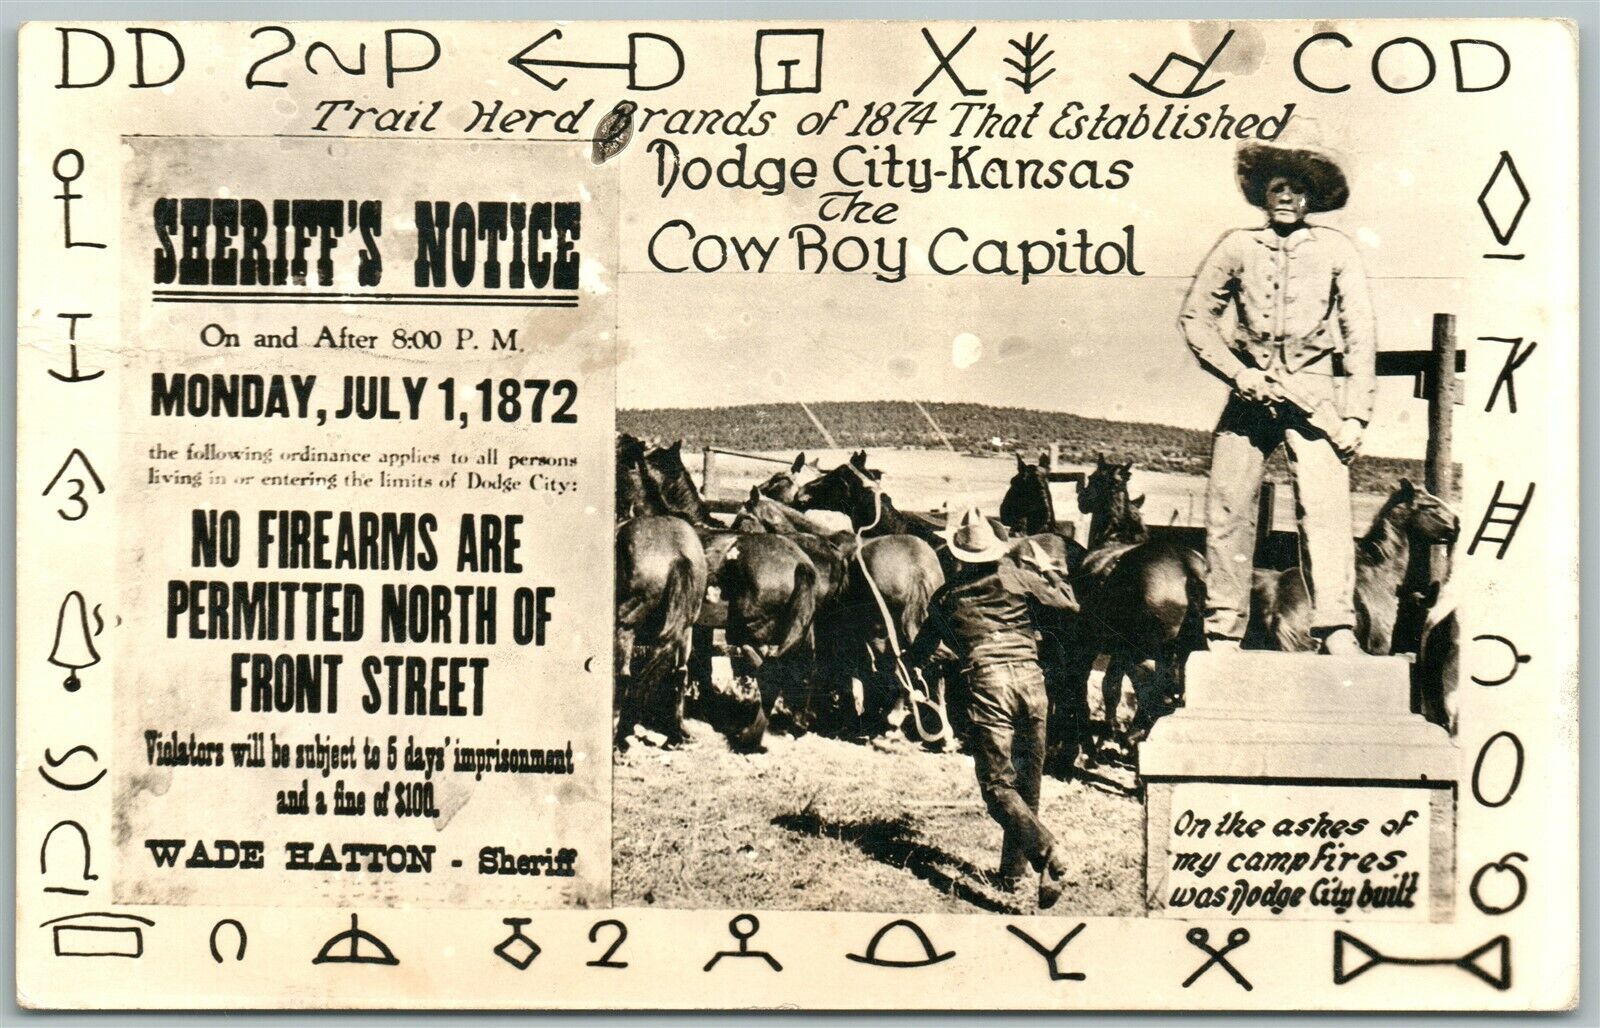 DD 2~P D T X COD
Trail Herd Brands of 1874 That Established
Dodge City-Kansas
The
Cow Boy Capitol
SHERIFF'S NOTICE
On and After 8:00 P. M.
MONDAY, JULY 1, 1872
the following ordinance applies to all persons
living in or entering the limits of Dodge City:
NO FIREARMS ARE
PERMITTED NORTH OF
FRONT STREET
Violators will be subject to 5 days' imprisonment
and a fine of $100.
WADE HATTON - Sheriff
3
K
2
On the ashes of
my campfires
was Dodge City built